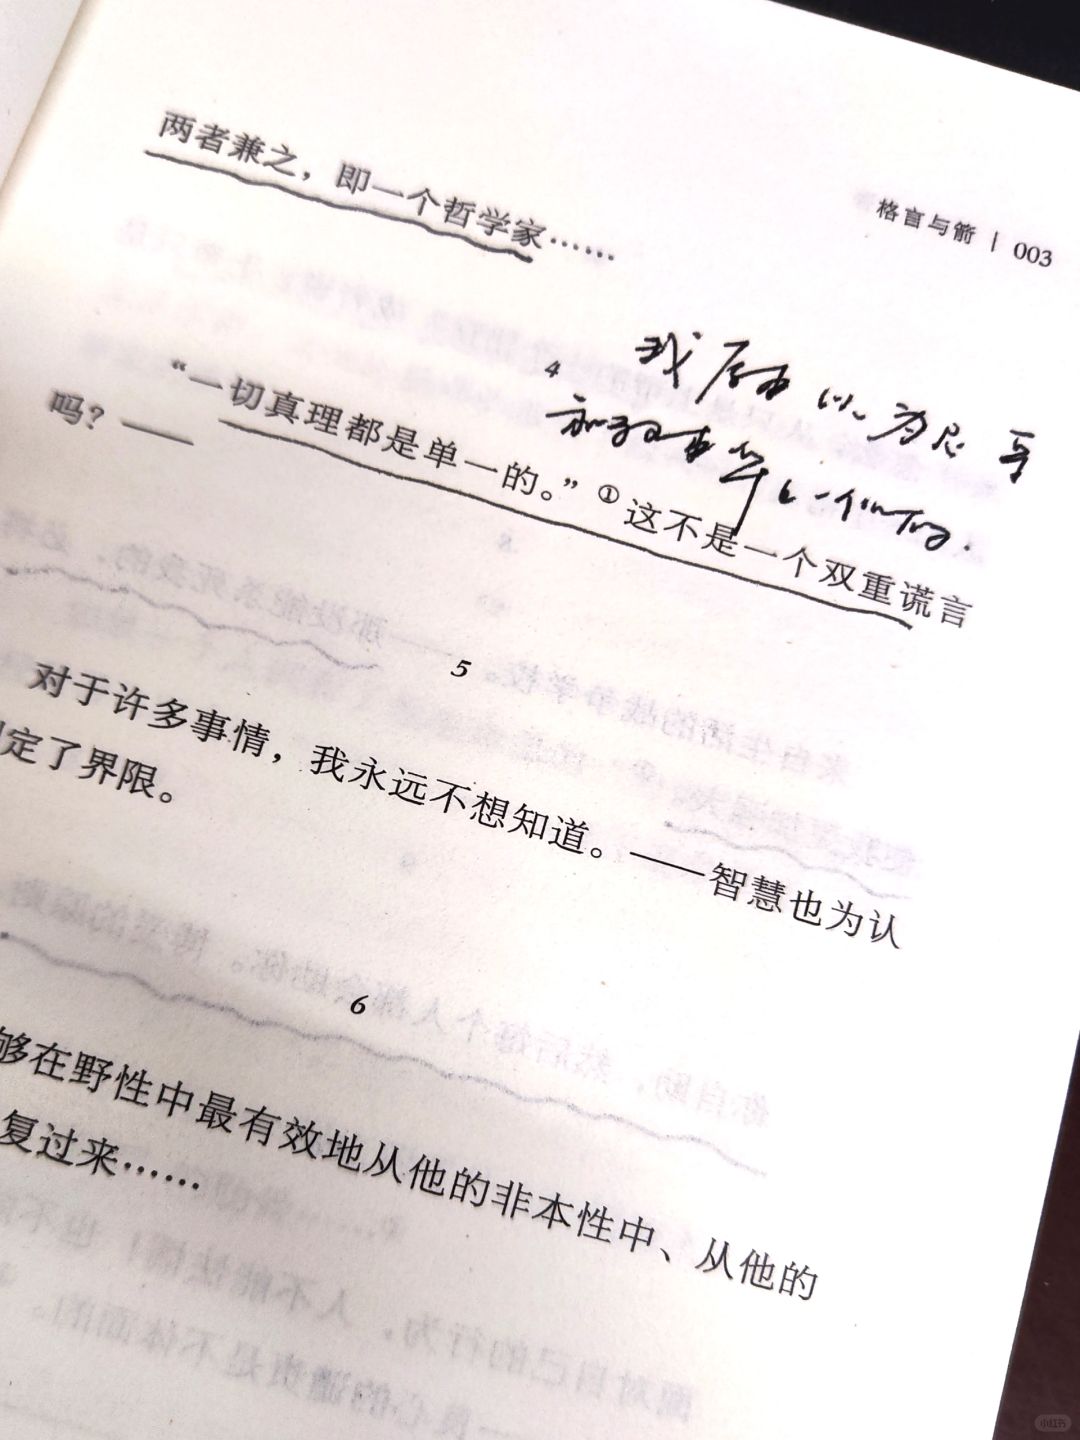 格言与箭 | 003
两者兼之，即一个哲学家……
4
我原以为
“一切真理都是单一的。”①这不是一个双重谎言
吗？——
5
对于许多事情，我永远不想知道。——智慧也为认
定了界限。
6
够在野性中最有效地从他的非本性中、从他的
复过来……
小红书